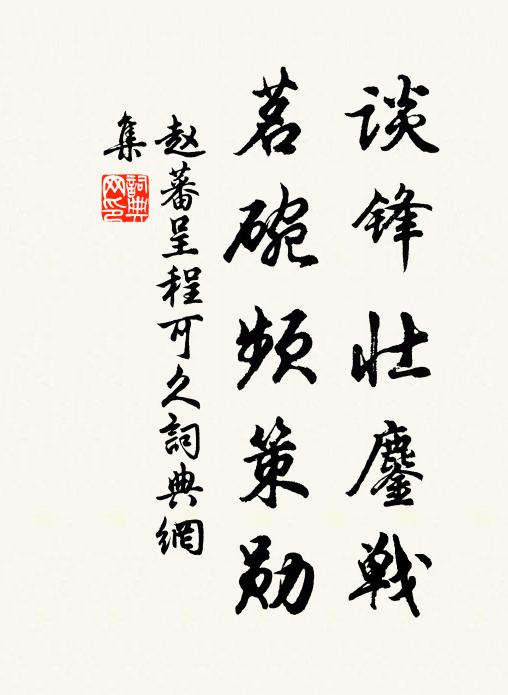 谈锋壮鏖战
茗碗频策勋
赵蕃呈程可久詞典網
集
詞典
网印